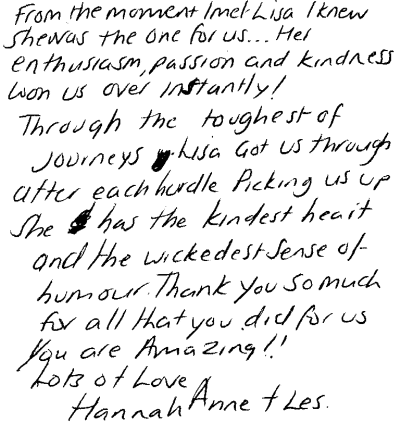 From the moment I met Lisa I knew
she was the one for us... Her
enthusiasm, passion and kindness
won us over instantly!
Through the toughest of
journeys Lisa Got us through
after each hurdle Picking us up
She has the kindest heart
and the wickedest sense of
humour. Thank you so much
for all that you did for us
You are Amazing!!
Lots of Love
Hannah Anne + Les.